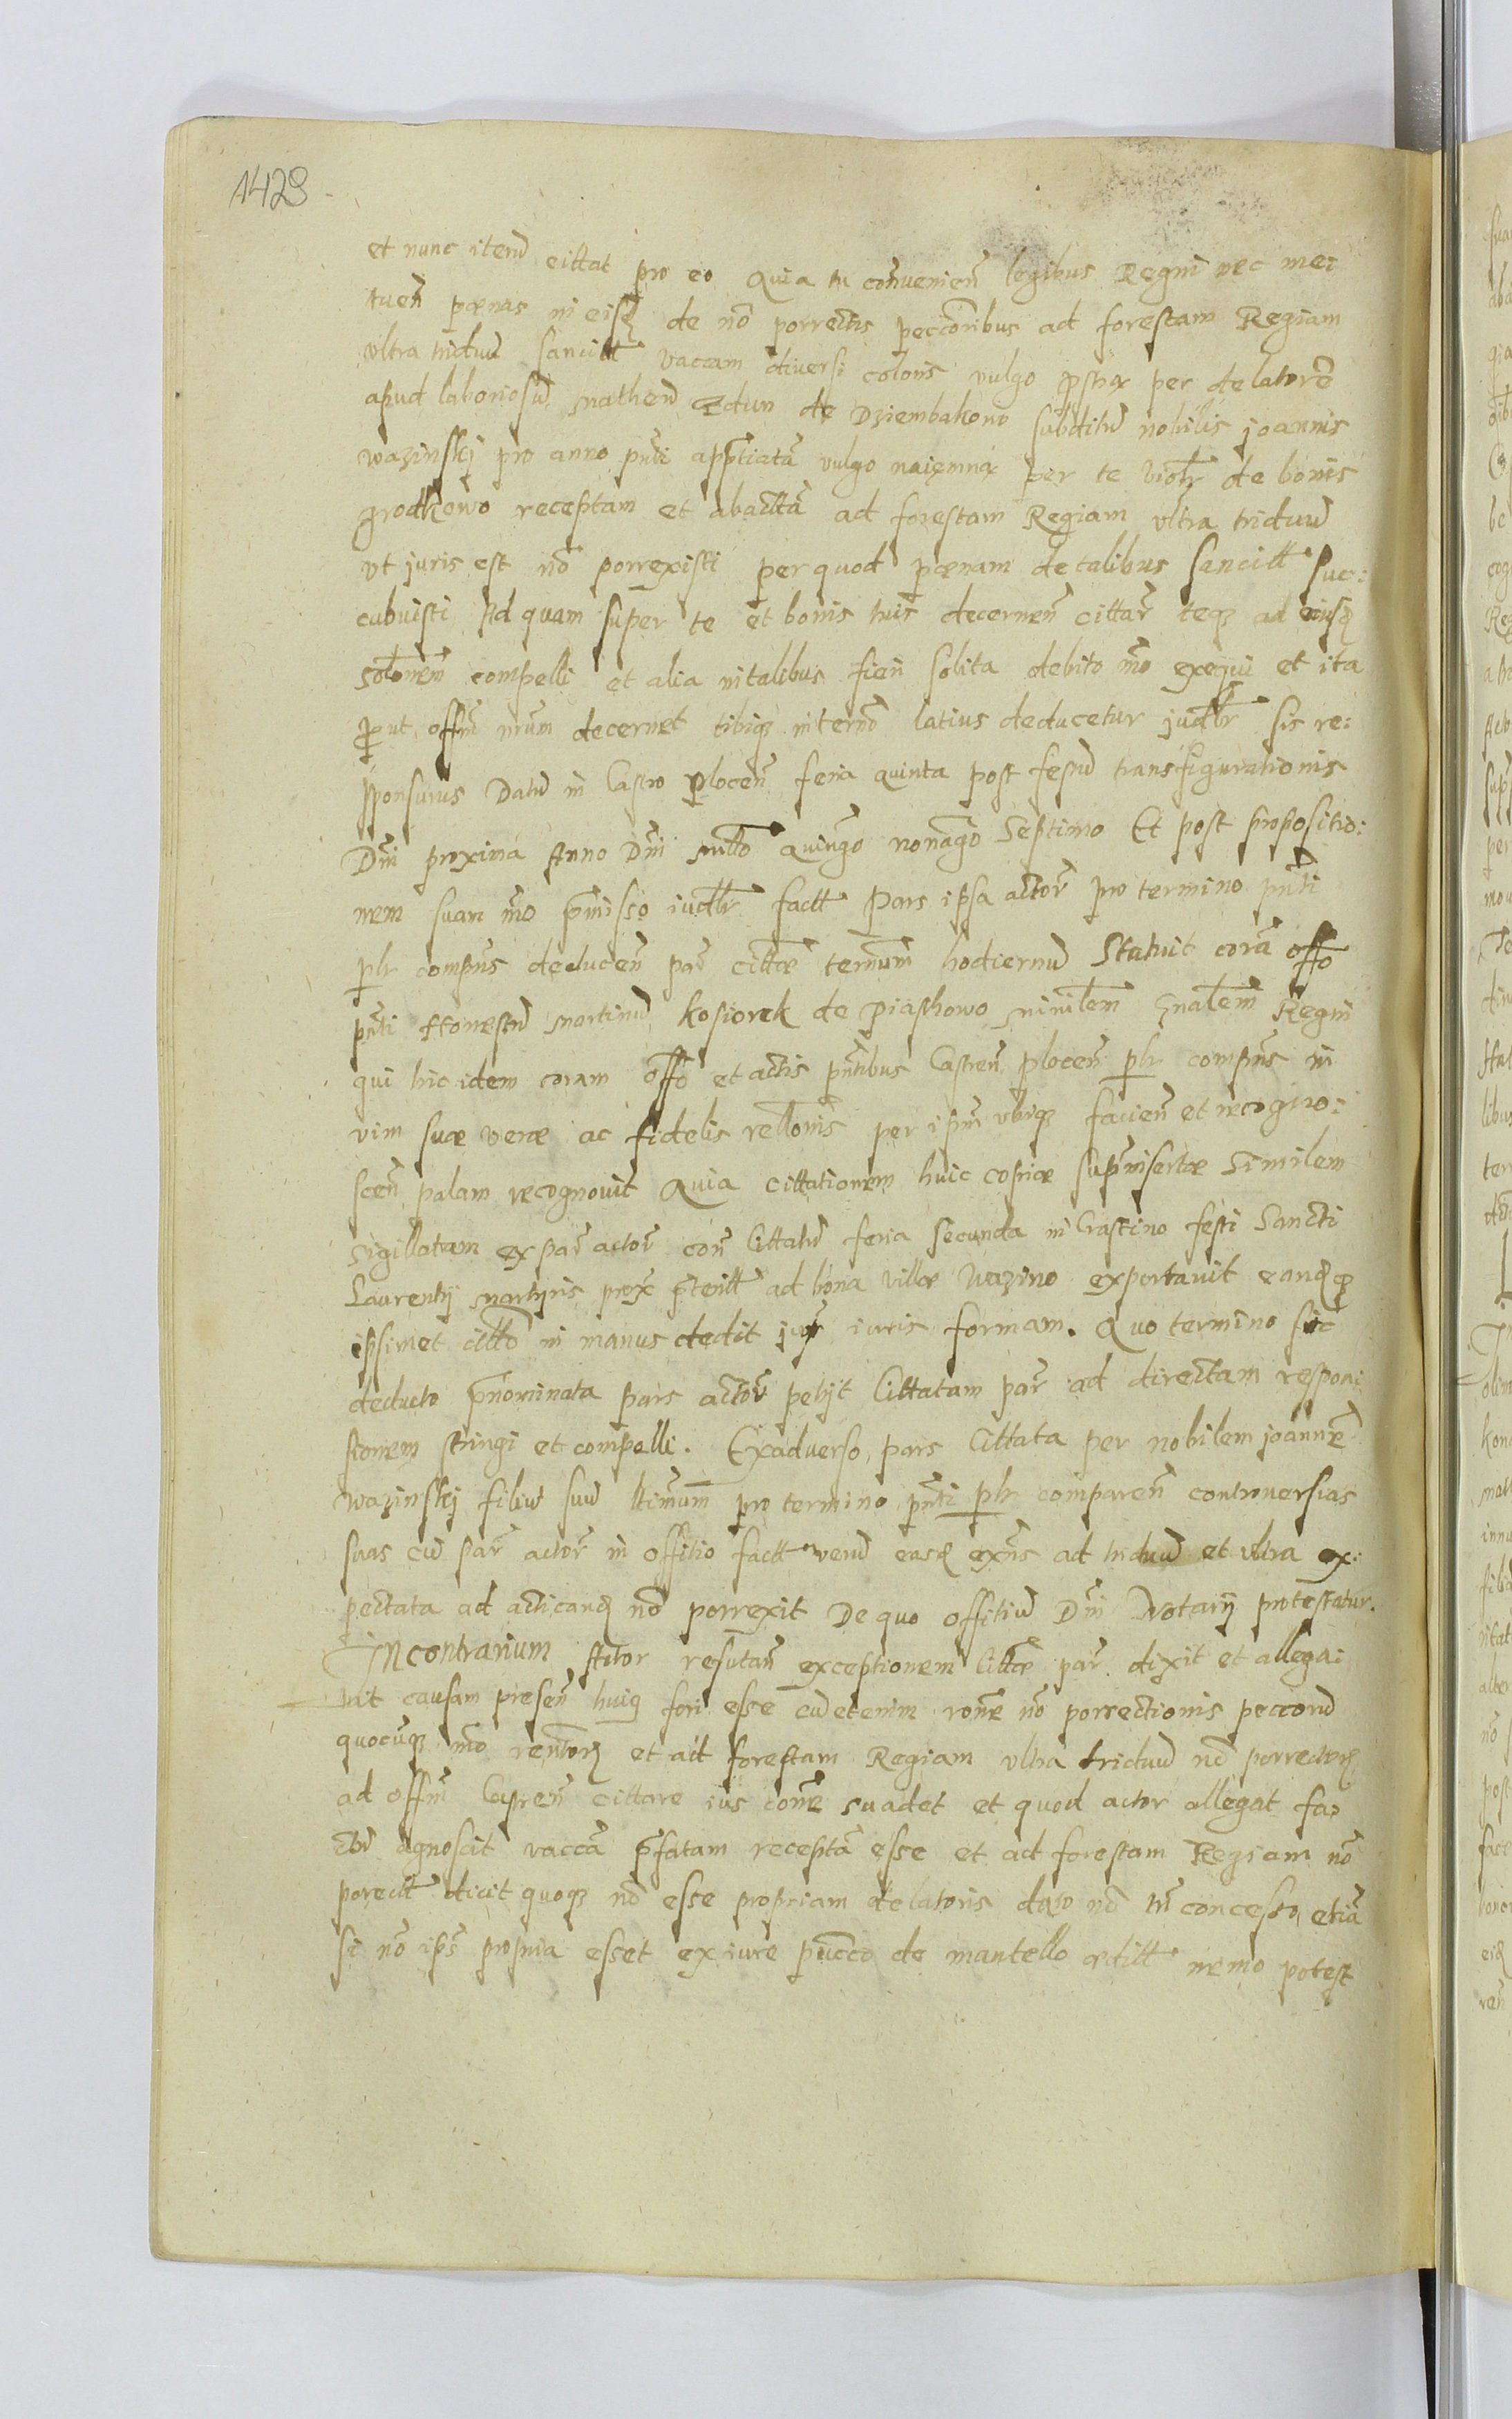 1428
et nunc iterũ cittat pro eo Quia tu conveniẽn legibus Regni nec me:
tuen̄ pœnas in eisq̃ de nõ porrectis peccoribus ad forestam Regiam
vltra triduũ sancitt vaccam diversi coloris vulgo pstrą per delatorẽ
apud laboriosũ Matheũ de Dziembakowo subditũ nobilis Joannis
wazinskj pro anno pñti appretiatã vulgo naiemną per te violtr de bonis
grodkowo receptam et abacttã ad forestam Regiam vltra triduũ
vt juris est nõ porrexisti per quod pœnam de talibus sancitt suc:
cubuisti Ad quam super te et bonis tuis decerneñ cittar̃ teq3 ad eiusq̃
solõnem compelli et alia in talibus fieri solita debito mõo exequi et ita
put offm̃ nrum decernet tibiq3 in termõ latius deducetur judltr sis re:
sponsurus Datũ in Castro plocen̄ feria quinta post festũ transfigurationis
Dñi proxima Anno Dñi Millõ Quingõ nonagõ Septimo Et post propositio:
nem suam mõo p̃misso iudltr factt Pars ipsa actor̃ pro termino pñti
pltr compñs deducen̄ par̃ cittæ termum̃ hodiernũ Statuit corã offõ
pñti Honestũ Martinũ Kosiorek de Piaskowo Minilem̃ Gnalem̃ Regni
qui hic idem coram offõ et actis pñtibus Castren̄ plocen̄ pltr compñs in
vim suæ veræ ac fidelis rellonis per ipm̃ vbiq3 facien̄ et recogno:
scen̄ palam recognovit Quia cittationem huic copiæ suprinsertæ Similem
sigillatam ex par̃ actor̃ con̄ Cittatũ feria secunda in Crastino festi Sancti
Laurentij Martyris prox̃ p̃teritt ad bona villæ Wazino exportavit eandq̃3
ipsimet cittõ in manus dedit iux̃ iuris formam. Quo termino sic
deducto p̃nominata pars actor̃ petijt Cittatam par̃ ad directam respon:
sionem stringi et compelli. Exadverso pars Cittata per nobilem joannẽ
wazinskj filiũ suũ ltimum̃ pro termino pñti pltr comparen̄ controversias
suas cũ par̃ actor̃ in offitio factt verũ easq̃ exñs ad triduũ et vltra ex:
pectata ad acticanq̃ nõ porrexit De quo offitiũ Dñi Notarij protestatur.
In contrarium Actor refutan̄ exceptionem Cittæ par̃ dixit et allega:
vit causam presen̄ huiq̃ fori esse cũ etenim rone nõ porrectionis peccorũ
quocũq3 mõo rentorq̃ et ad forestam Regiam vltra triduũ nõ porrectorq̃
ad offm̃ Castren̄ cittare ius cõne suadet et quod actor allegat fa:
ctũ agnoscit vaccã p̃fatam receptã esse et ad forestam Regiam nõ
porectt dicit quoq3 nõ esse propriam delatoris dato nõ tñ concesso, etiã
si nõ ips̃ propria esset ex iure puccõ de mantello ætitt nemo potest